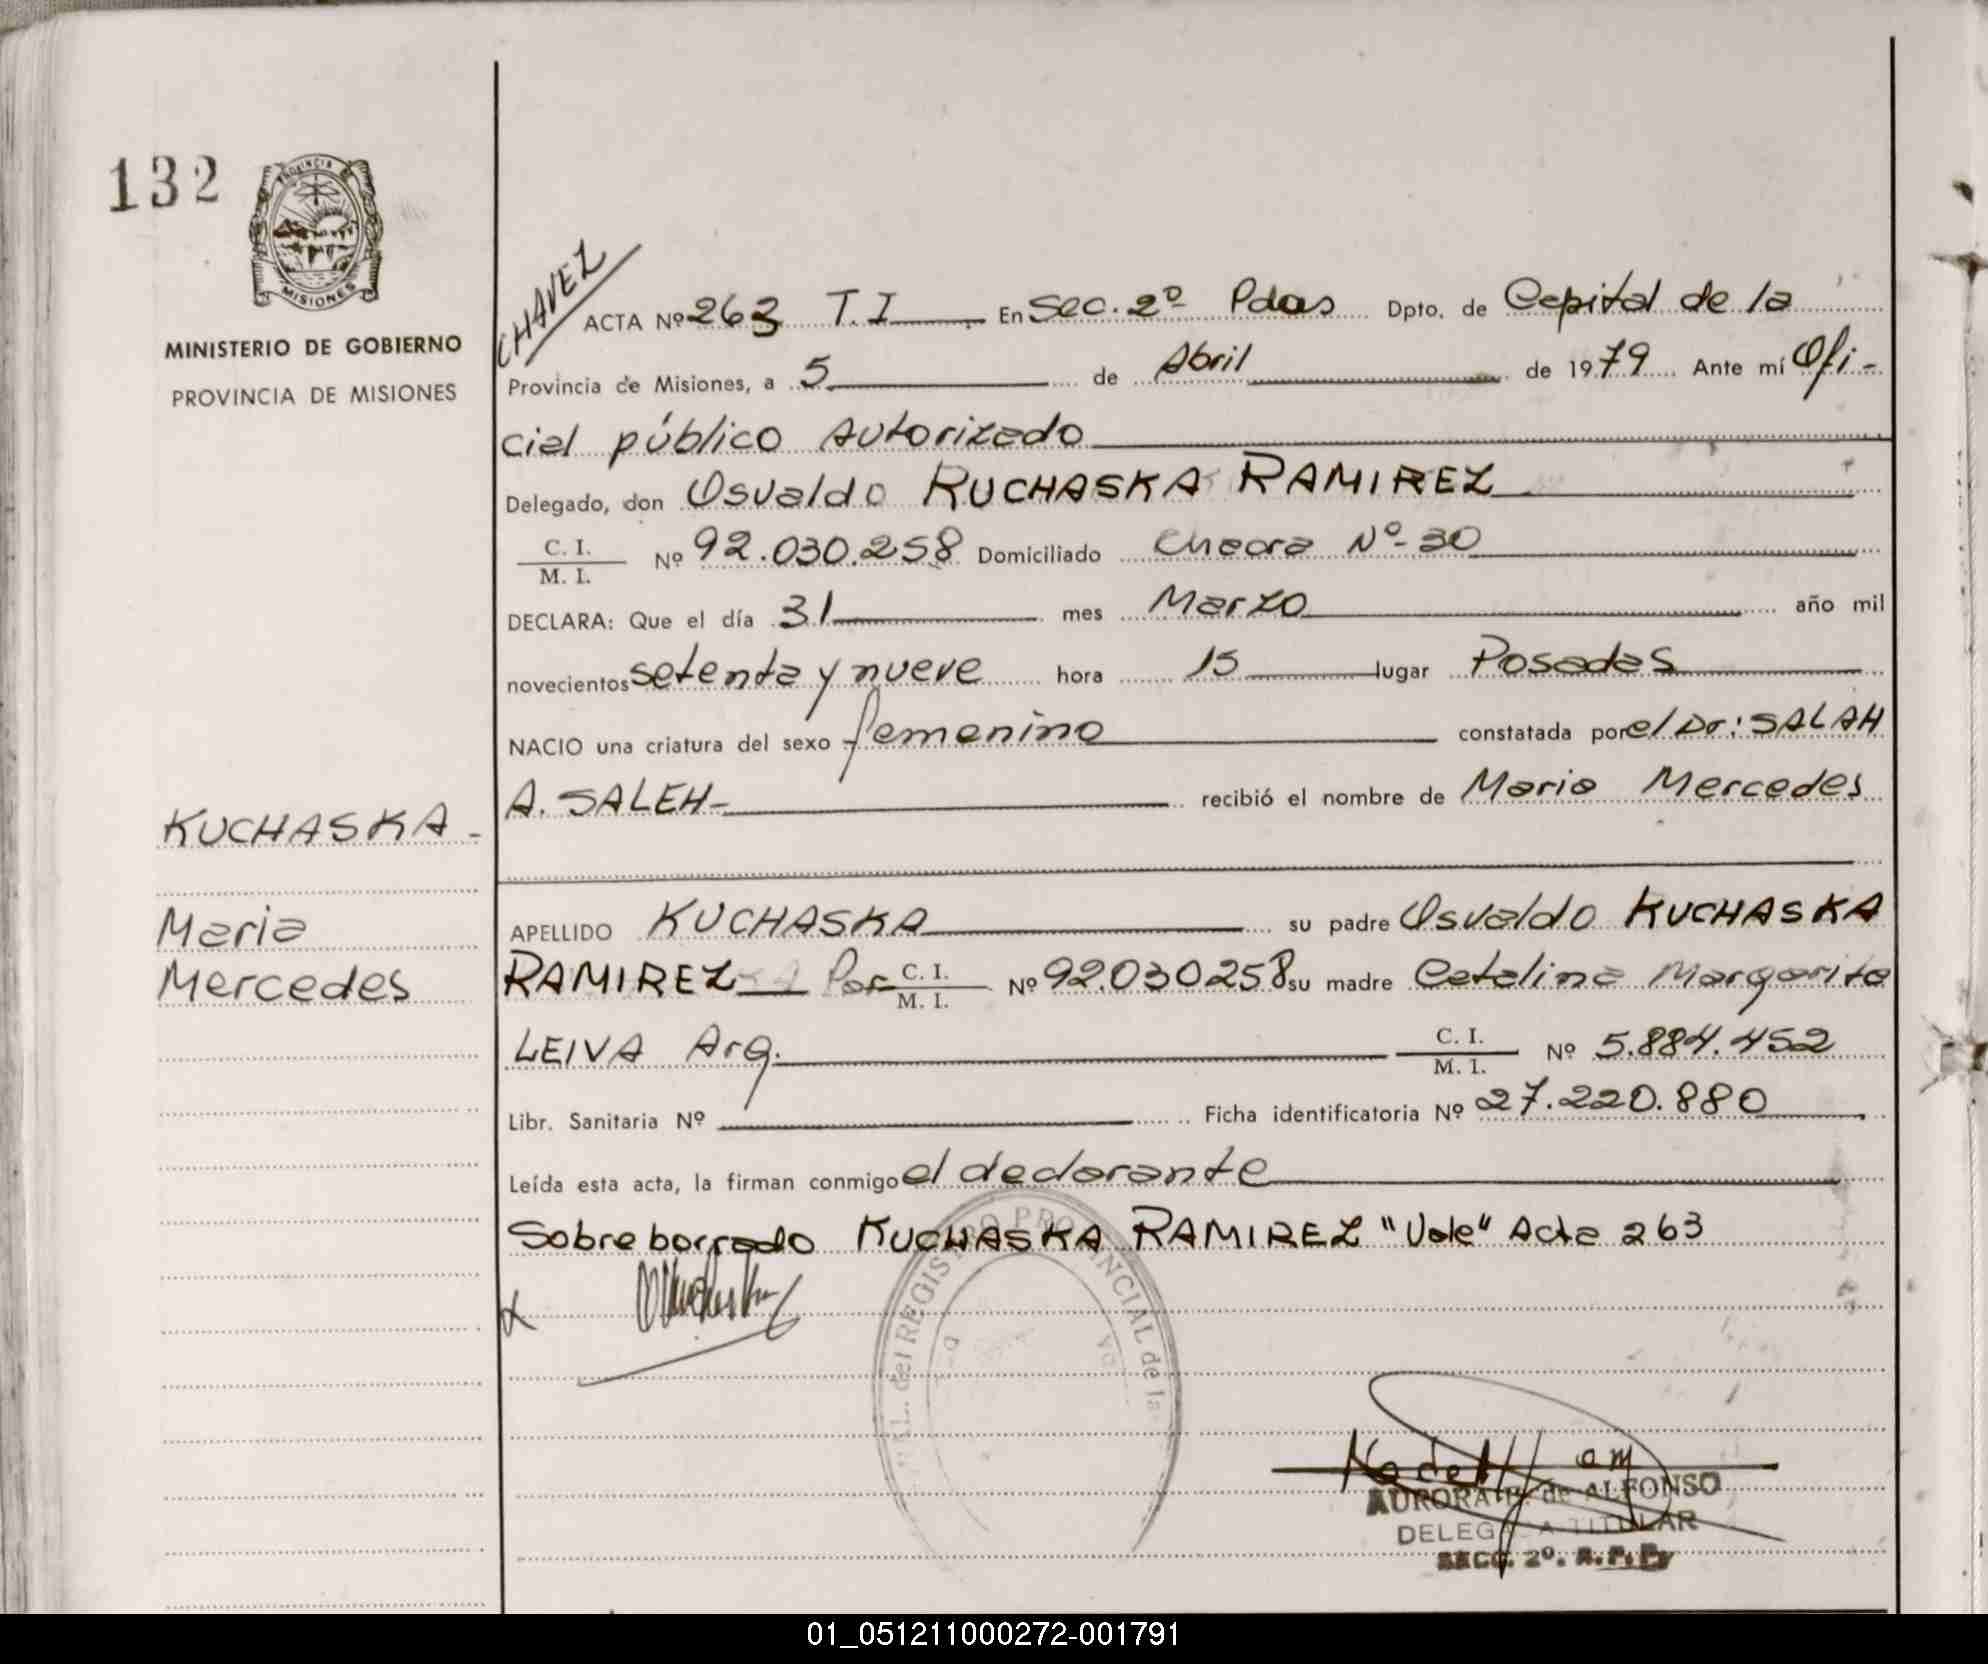 132
PROVINCIA DE
MISIONES
MINISTERIO DE GOBIERNO
PROVINCIA DE MISIONES
CHAVEZ
ACTA Nº 263 T.I En Sec. 2º Pdas Dpto. de Capital de la
Provincia de Misiones, a 5 de Abril de 1979 Ante mí Ofi-
cial público autorizado
Delegado, don Osvaldo KUCHASKA RAMIREZ
C. I.
M. I. Nº 92.030.258 Domiciliado Chacra Nº 30
DECLARA: Que el día 31 mes Marzo año mil
novecientos setenta y nueve hora 15 lugar Posadas
NACIO una criatura del sexo femenino constatada por el Dr: SALAH
A. SALEH- recibió el nombre de Maria Mercedes
KUCHASKA -
Maria
Mercedes
APELLIDO KUCHASKA su padre Osvaldo KUCHASKA
RAMIREZ Par C. I. M. I. Nº 92.030258 su madre Catalina Margarita
LEIVA Arg. C. I. M. I. Nº 5.884.452
Libr. Sanitaria Nº Ficha identificatoria Nº 27.220.880
Leída esta acta, la firman conmigo el declarante
Sobreborrado KUCHASKA RAMIREZ "Vale" Acta 263
del REGISTRO PROVINCIAL de la
AURORA de ALFONSO
DELEGADA TITULAR
SECC. 2º. R.P.P.
01_051211000272-001791